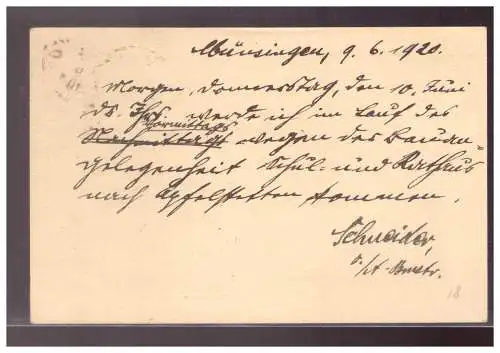 Münsingen, 9. 6. 1920.
Morgen, Donnerstag, den 10. Juni
ds. Jhrs. werde ich im Lauf des
Vormittags
Nachmittags wegen der Bauan-
gelegenheit Schul und Rathaus
nach Apfelstetten kommen.
Schneider,
18